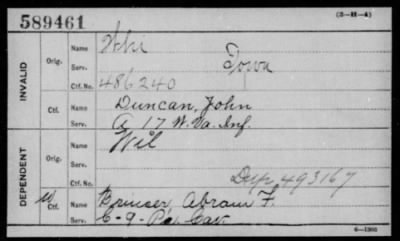 589461
(3-H-4)
INVALID
Orig.
Name Whi
Serv. Iowa
Ctf. No. 486240
Ctf.
Name Duncan, John
Serv. A 17 W. Va. Inf.
DEPENDENT
Orig.
Name Wil
Serv.
Ctf. No. Dup. 493167
Ctf.
Name Brinser, Abram F.
Serv. C-9-Pa. Cav.
6-1360